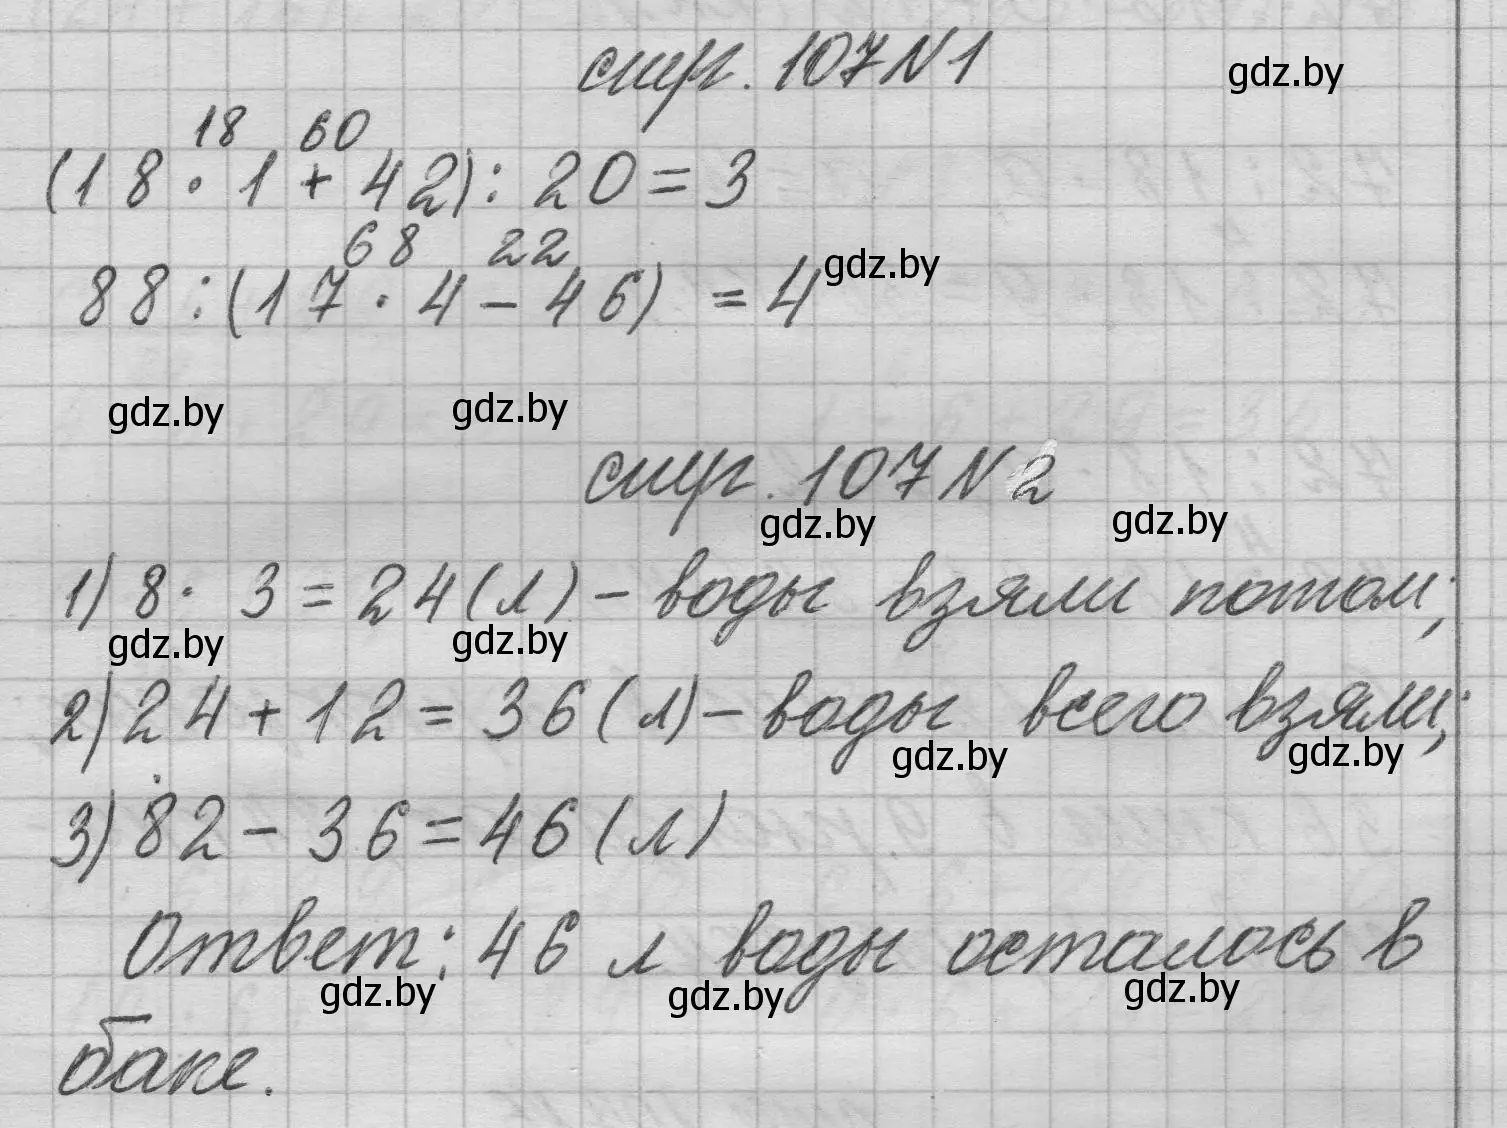 стр. 107 N 1
gdz.by
18 60
(18 · 1 + 42) : 20 = 3
68 22
88 : (17 · 4 - 46) = 4
gdz.by
gdz.by gdz.by
стр. 107 N 2
gdz.by gdz.by
1) 8 · 3 = 24 (л) - воды взяли потом;
gdz.by gdz.by
2) 24 + 12 = 36 (л) - воды всего взяли;
gdz.by gdz.by
3) 82 - 36 = 46 (л)
Ответ: 46 л воды осталось в
gdz.by gdz.by gdz.by
баке.